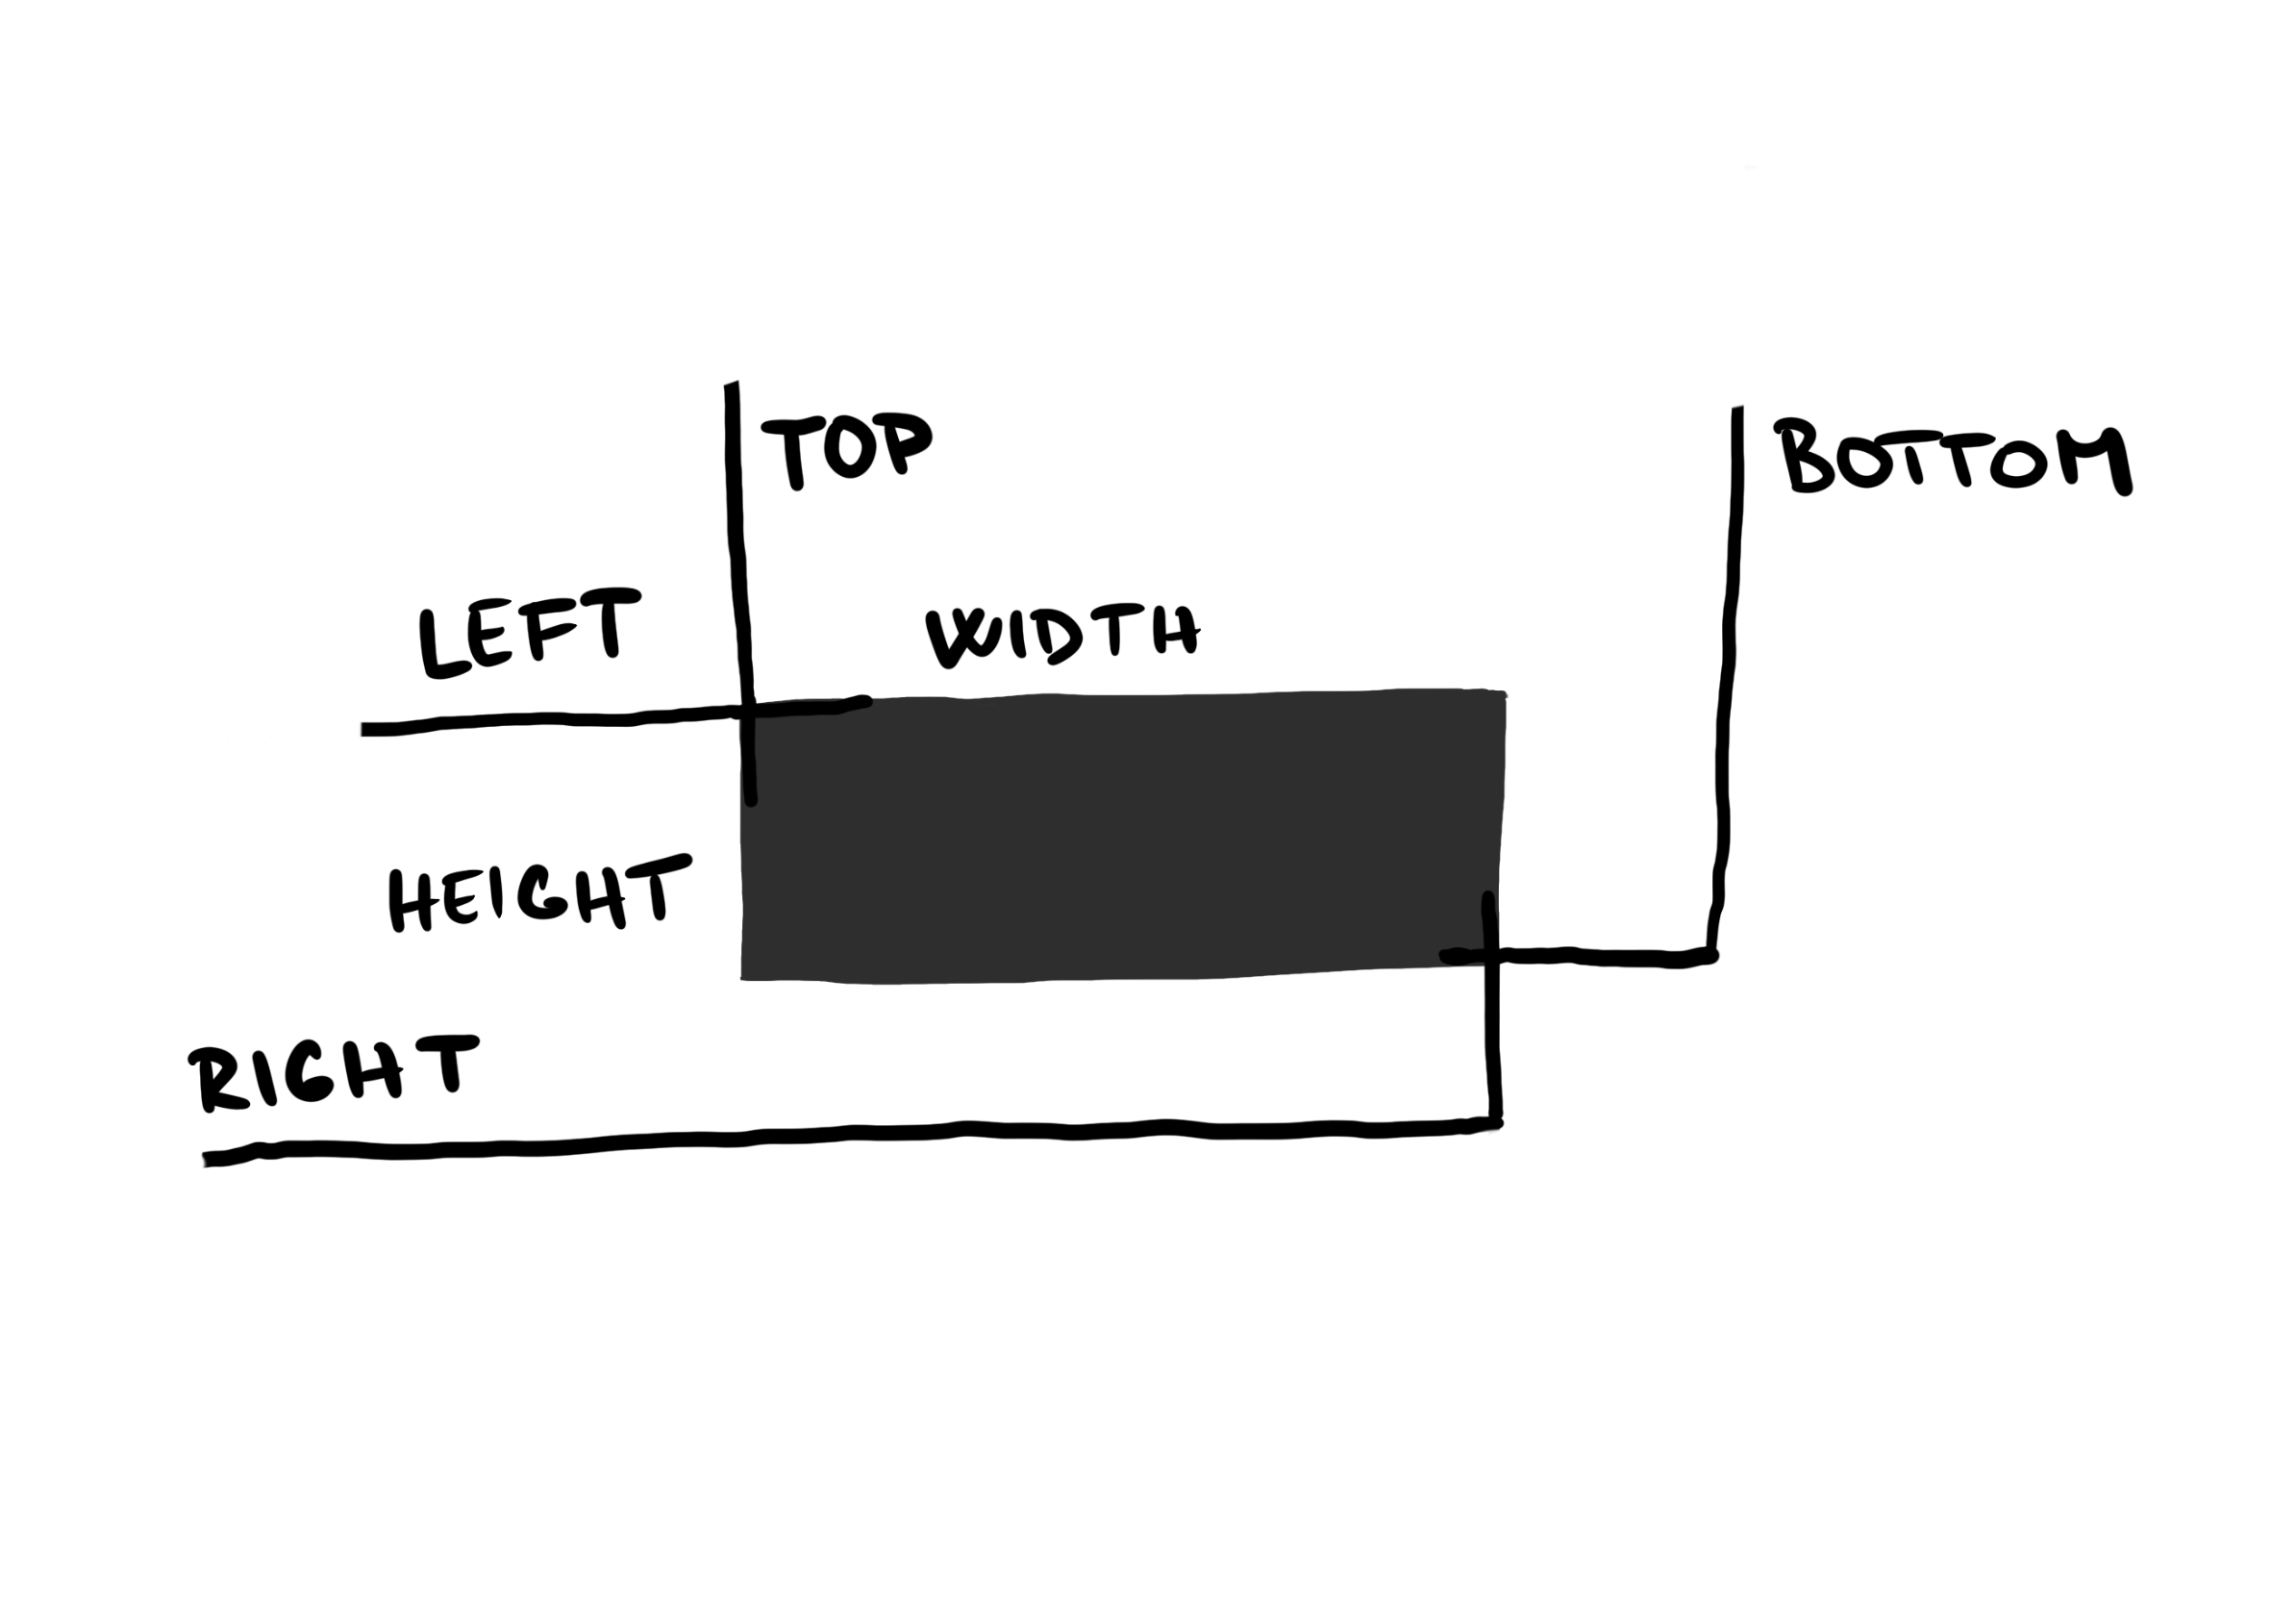 TOP
BOTTOM
LEFT
WIDTH
HEIGHT
RIGHT